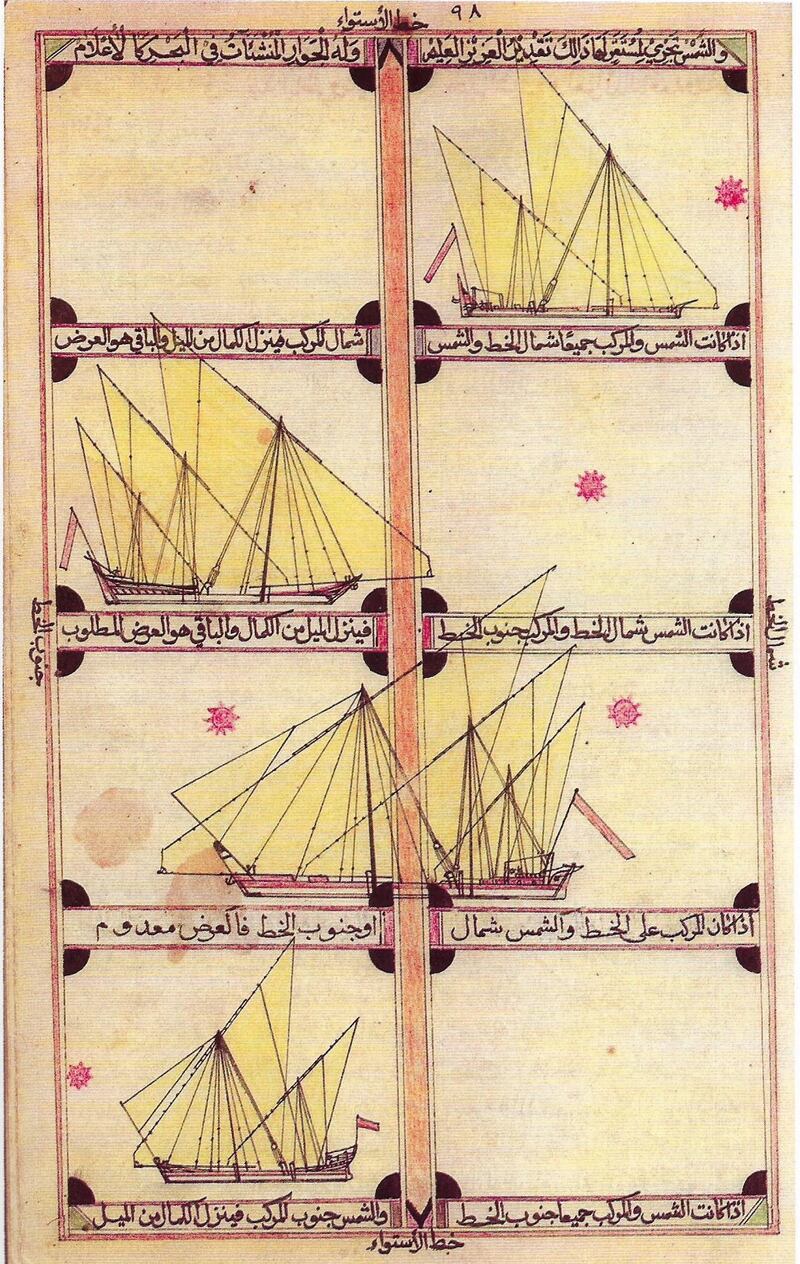 ٩٨
خط الأستواء
وَالشَّمْسُ تَجْرِيْ لِمُسْتَقَرٍّ لَهَا ذَالِكَ تَقْدِيْرُ الْعَزِيْزِ الْعَلِيْمِ
وَلَهُ الْجَوَارِ الْمُنْشَئَاتُ فِي الْبَحْرِ كَالْأَعْلَامِ
اذا كانت الشمس والمركب جميعًا شمال الخط والشمس
شمال المركب فينزل الكمال من الميل والباقي هو العرض
اذا كانت الشمس شمال الخط والمركب جنوب الخط
فينزل الميل من الكمال والباقي هو العرض المطلوب
شمال الخط
جنوب الخط
اذا كان المركب على الخط والشمس شمال
او جنوب الخط فالعرض معدوم
اذا كانت الشمس والمركب جميعا جنوب الخط
والشمس جنوب المركب فينزل الكمال من الميل
خط الأستواء